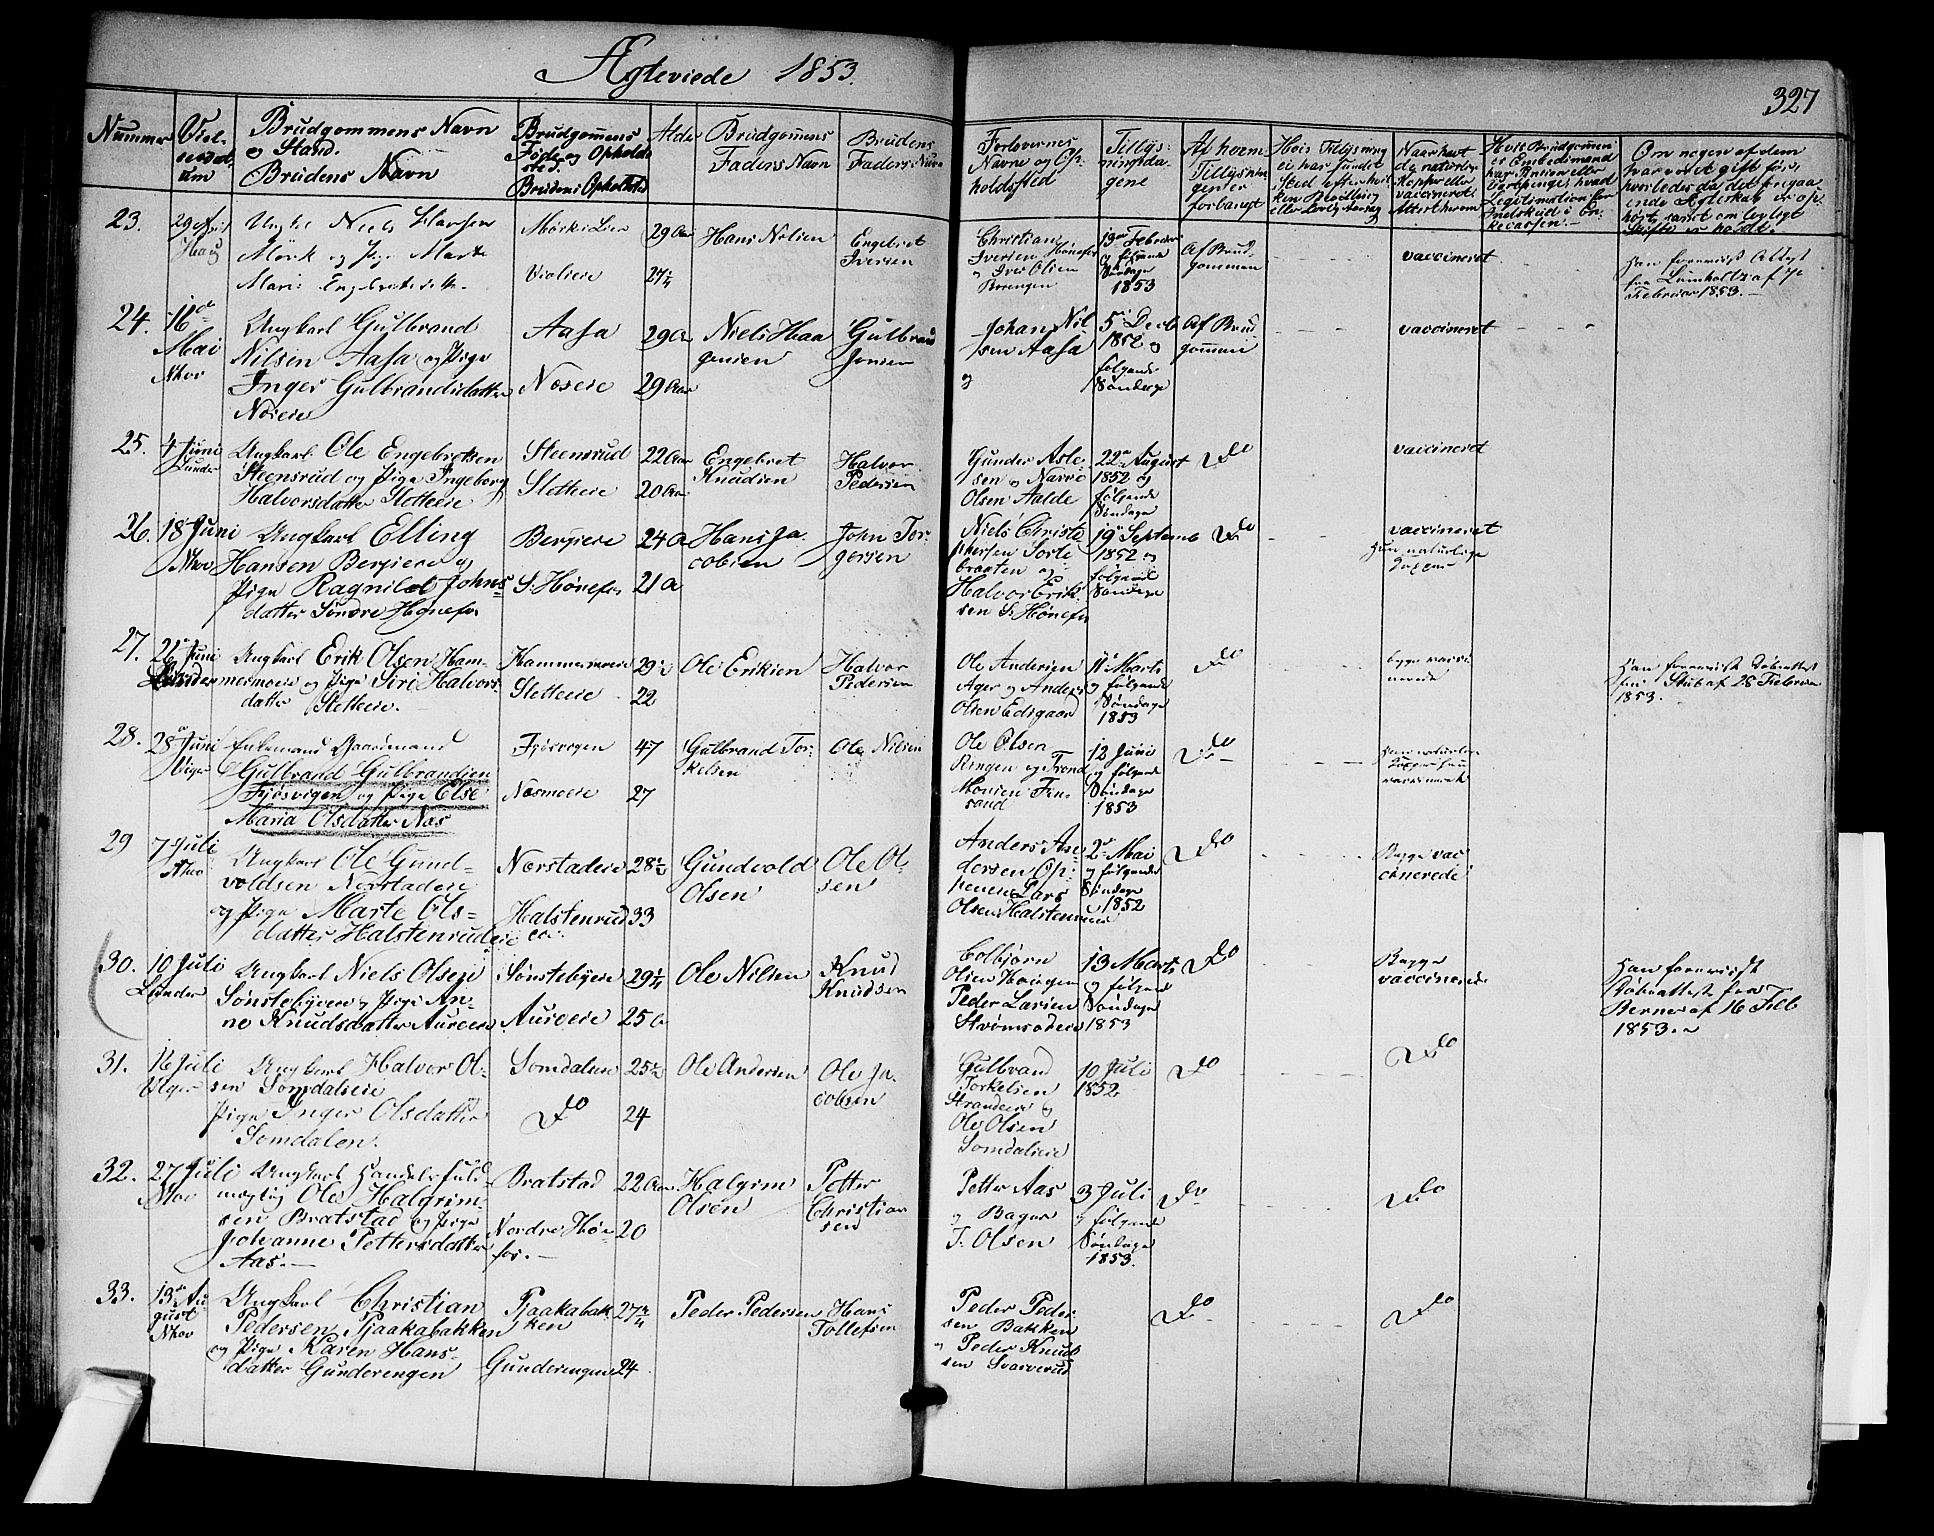 Ægteviede 1853.
327
Nummer
Viel-
sesdat-
um
Brudgommens Navn
og Stand.
Brudens Navn
Brudgomens
Føde og Opholds
sted.
Brudens Opholdssted
Alder
Brudgomens
Faders Navn
Brudens
Faders Navn
Forlovernes
Navne og Op-
holdsted
Tillys-
ningsda-
gene
Af hvem
Tillysnin-
gen er
forlangt
Hvis Tillysning
ei har fundet
Sted efter hvil-
ken Bevilling
Naar havt
de naturlige
Kopper eller
vaccineret
Attest herom
Hvis Brudgommen
er Embedsmand
Om nogen af dem
har været gift før,
hvorledes da det foregaa-
ende Ægteskab er op-
hört, samt om lovligt
Skifte er holdt.
23.
29 April
Haug
Ungk. Niels Hansen
Mörk og Pige Marte
Mari Engebretsdtt.
Mörk Eien
Violeie
29 Aar
27¼
Hans Nilsen
Engebret
Iversen
Christian
Iversen Hönefos
og Iver Olsen
13de Februar
og følgende
Søndage
1853
Af Brud-
gommen
vaccineret
Han foreviist Attest
fra Lumholtz af
Februar 1853.
24.
16de
Mai
Nhov
Ungkarl Gulbrand
Nilsen Aasa og Pige
Inger Gulbrandsdatter
Næseie
Aasa
Næseie
29 Aar
29 Aar
Niels Haa-
gensen
Gulbrand
Jensen
Johan Nil-
sen Aasa
og
5 Decb
1852 og
følgende
Søndage
Af Brud
gommen
vaccineret
25.
4 Juni
Lunder
Ungkarl Ole Engebretsen
Steensrud og Pige Ingeborg
Halvorsdatter Sletteeie
Steensrud
Sletteeie
22 Aar
20 Aar
Engebret
Knudsen
Halvor
Pedersen
Gunder Asle-
sen og Narve
Olsen Aalde
22de August
1852 og
følgende
Søndage
Do
vaccineret
26.
18 Juni
Nhov
Ungkarl Elling
Hansen Bergseie og
Pige Ragnild Johns-
datter Søndre Hønefos
Bergseie
S. Hönefos
24 A
21 A
Hans Ja-
cobsen
John Tor-
gersen
Niels Christo-
phersen Sorte-
braaten og
Halvor Erik-
sen S. Hönefos
19 Septemb
1852 og
følgende
Søndage
Do
vaccineret
Hun naturlige
27.
26 Juni
Lunder
Ungkarl Erik Olsen Ham-
mermoeie og Pige Siri Halvors-
datter Sletteeie.
Hammermoeie
Sletteeie
29½
22
Ole Eriksen
Halvor
Pedersen
Ole Andersen
Ager og Anders
Olsen Edsgaard
11 Marts
og følgende
Søndage
1853
Do
begge vacci
nerede
Han foreviist Døbeattest
fra Stub af 28 Februar
1853.
28.
28de Juni
Viger
Enkemand Gaardmand
Gulbrand Gulbrandsen
Fjösvigen og Pige Else
Maria Olsdatter Næs
Fjösvigen
Næsmoeie
47
27
Gulbrand Tor-
kelsen
Ole Nilsen
Ole Olsen
Ringen og Trond
Monsen Fin-
sand
12 Juni
og følgende
Søndage
1853
Do
Han naturlige
vaccineret
29
7 Juli
Nhov
Ungkarl Ole Gund-
voldsen Nærstadeie
og Pige Marte Ols-
datter Halstenrudeie
Nærstadeie
Halstenrud
eie
28½
33
Gundvold
Olsen
Ole Ol-
sen
Anders An-
dersen Op-
henen Lars
Olsen Halstenrud
2de Mai
og følgende
Søndage
1852
Do
Begge vac
cinerede
30.
10 Juli
Lunder
Ungkarl Niels Olsen
Sønstebyeie og Pige An-
ne Knudsdatter Aureeie
Sønstebyeie
Aureeie
29¼
25 A
Ole Nilsen
Knud
Knudsen
Colbjørn
Olsen Haugen
Peder Larsen
Strømsodeie
13 Marts
og følgende
Søndage
1853
Do
Begge
vaccinerede
Han foreviist
Døbeattest fra
Berner af 16 Feb
1853.
31.
16 Juli
Viger
Ungkarl Halvor Ol-
sen Somdaleie
Pige Inger Olsdatter
Somdalen.
Somdalen
Do
25½
24
Ole Andersen
Ole Ja-
cobsen
Gulbrand
Torkelsen
Strandeie og
Ole Olsen
Somdaleie
10 Juli
1852
Do
Do
32.
27 Juli
Nhov
Ungkarl Handelsfuld-
mægtig Ole Halgrim-
sen Bratstad og Pige
Johanne Pettersdatter
Aas.
Bratstad
Nordre Høne-
fos.
22 Aar
20
Halgrim
Olsen
Petter
Christian
sen
Petter Aas
og Bager
T. Olsen
3 Juli
og følgende
Søndage
1853.
Do
Do
33.
13de Au-
gust
Nhov
Ungkarl Christian
Pedersen Pjaakabakken
og Pige Karen Hans-
datter Gunderengen
Pjaakabak-
ken
Gunderengen
27¾
24
Peder Pedersen
Hans
Tollefsen
Peder Peder-
sen Bakken
og Peder Knud-
sen Svarverud
Do
Do